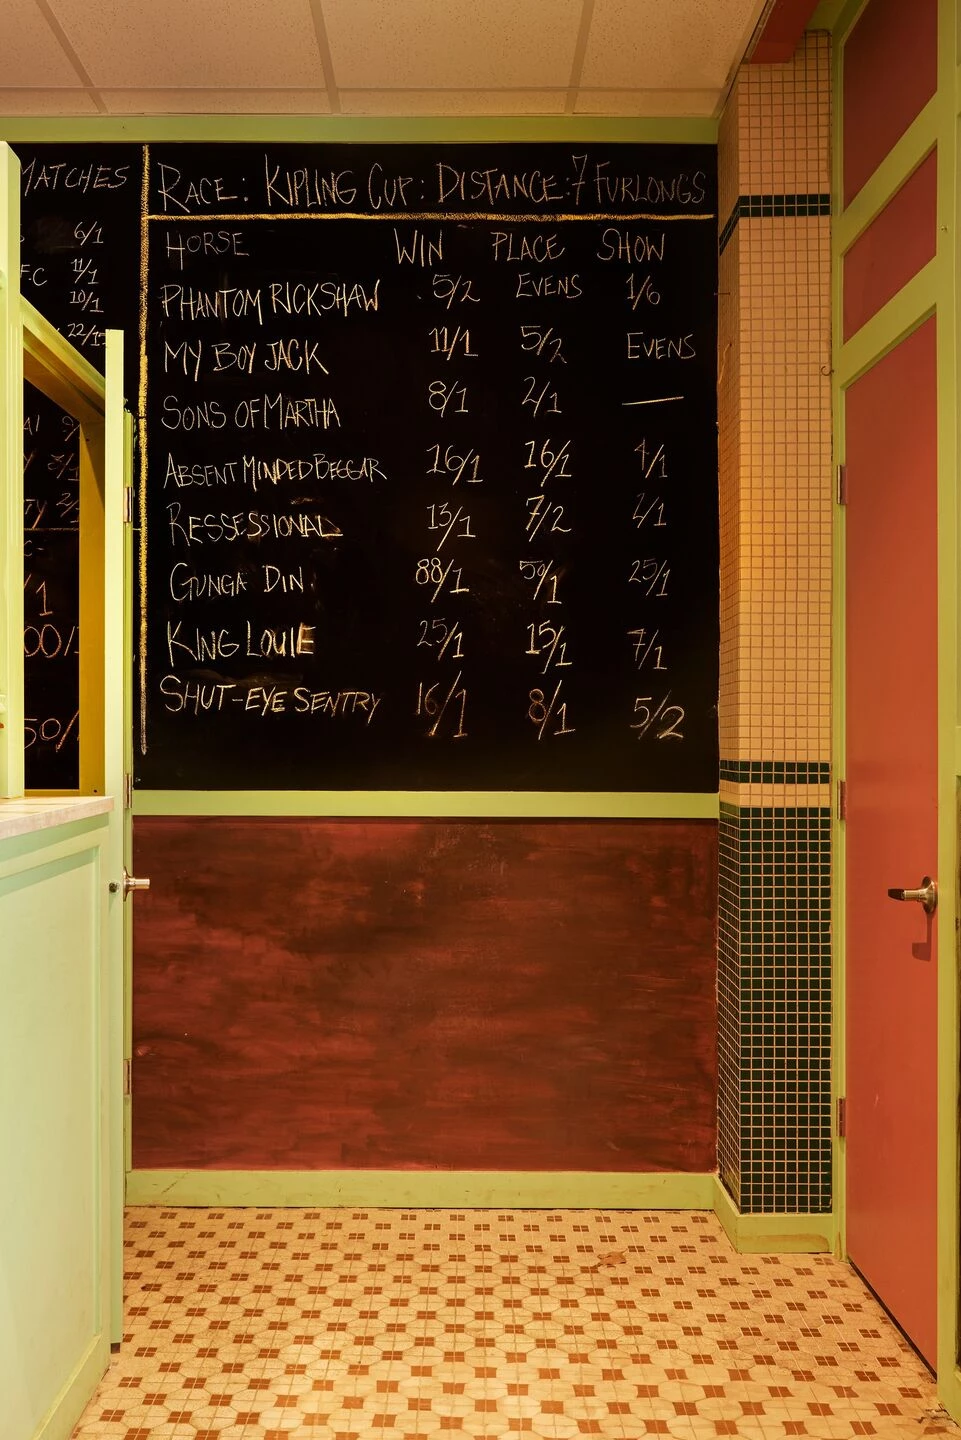 MATCHES
6/1
F.C 11/1
10/1
22/1
RACE: KIPLING CUP: DISTANCE: 7 FURLONGS
HORSE WIN PLACE SHOW
PHANTOM RICKSHAW 5/2 EVENS 1/6
MY BOY JACK 11/1 5/2 EVENS
SONS OF MARTHA 8/1 2/1 —
ABSENT MINDED BEGGAR 16/1 16/1 4/1
RESSESSIONAL 13/1 7/2 2/1
GUNGA DIN. 88/1 50/1 25/1
KING LOUIE 25/1 15/1 7/1
SHUT-EYE SENTRY 16/1 8/1 5/2